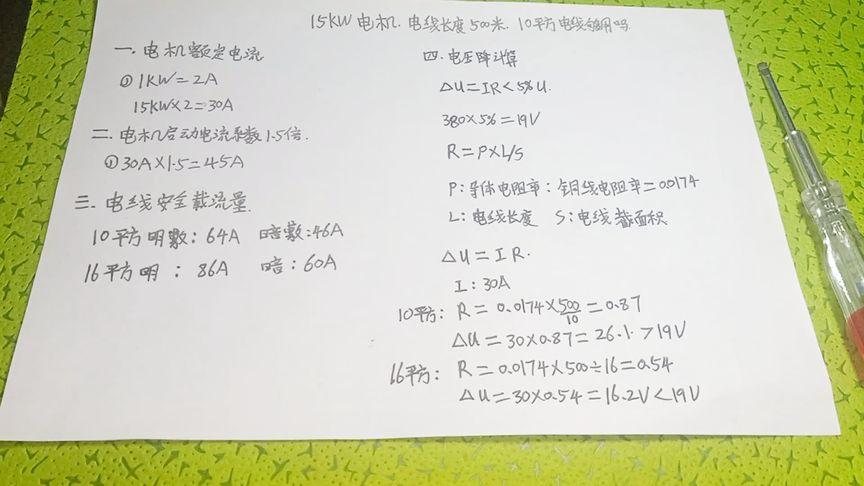 15KW 电机. 电线长度 500米. 10平方电线够用吗
一. 电机额定电流
① 1KW=2A
15KW×2=30A
二. 电机启动电流系数1.5倍.
① 30A×1.5=45A
三. 电线安全载流量.
10平方明敷: 64A 暗敷:46A
16平方明 : 86A 暗: 60A
四. 电压降计算
△U=IR<5%U.
380×5%=19V
R=P×L/S
P: 导体电阻率: 铜线电阻率=0.0174
L: 电线长度 S: 电线截面积
△U=IR.
I: 30A
10平方: R=0.0174×500/10=0.87
△U=30×0.87=26.1>19V
16平方: R=0.0174×500÷16=0.54
△U=30×0.54=16.2V<19V